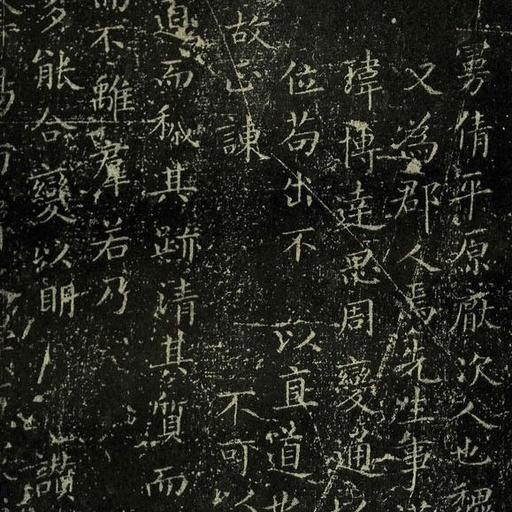 曼倩平原厭次人也魏
又為郡人焉先生事漢
瑋博達思周變通以
位苟出不 以直道也
故正諫 不可以
道而穢其跡清其質而
而不離羣若乃
多能合變以明 讚